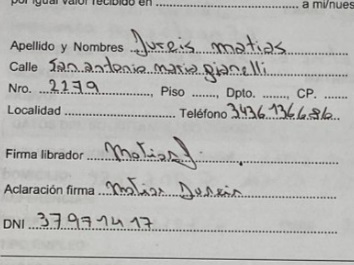 por igual valor recibido en ........ a mi/nues
Apellido y Nombres Dureis matias
Calle San antonio maria gianelli
Nro. 2279 Piso ......, Dpto. ......., CP. ......
Localidad ........ Teléfono 3436 136686
Firma librador Matias D.
Aclaración firma Matias Dureis
DNI 37971417